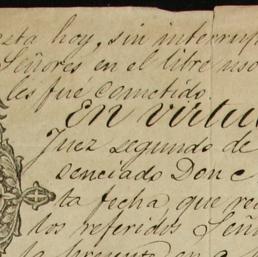 hoy, sin interrup
Señores en el libre uso
les fué cometido.
En virtu
Juez segundo de
senciado Don C
ta fecha que
los referidos Seño
la presente en